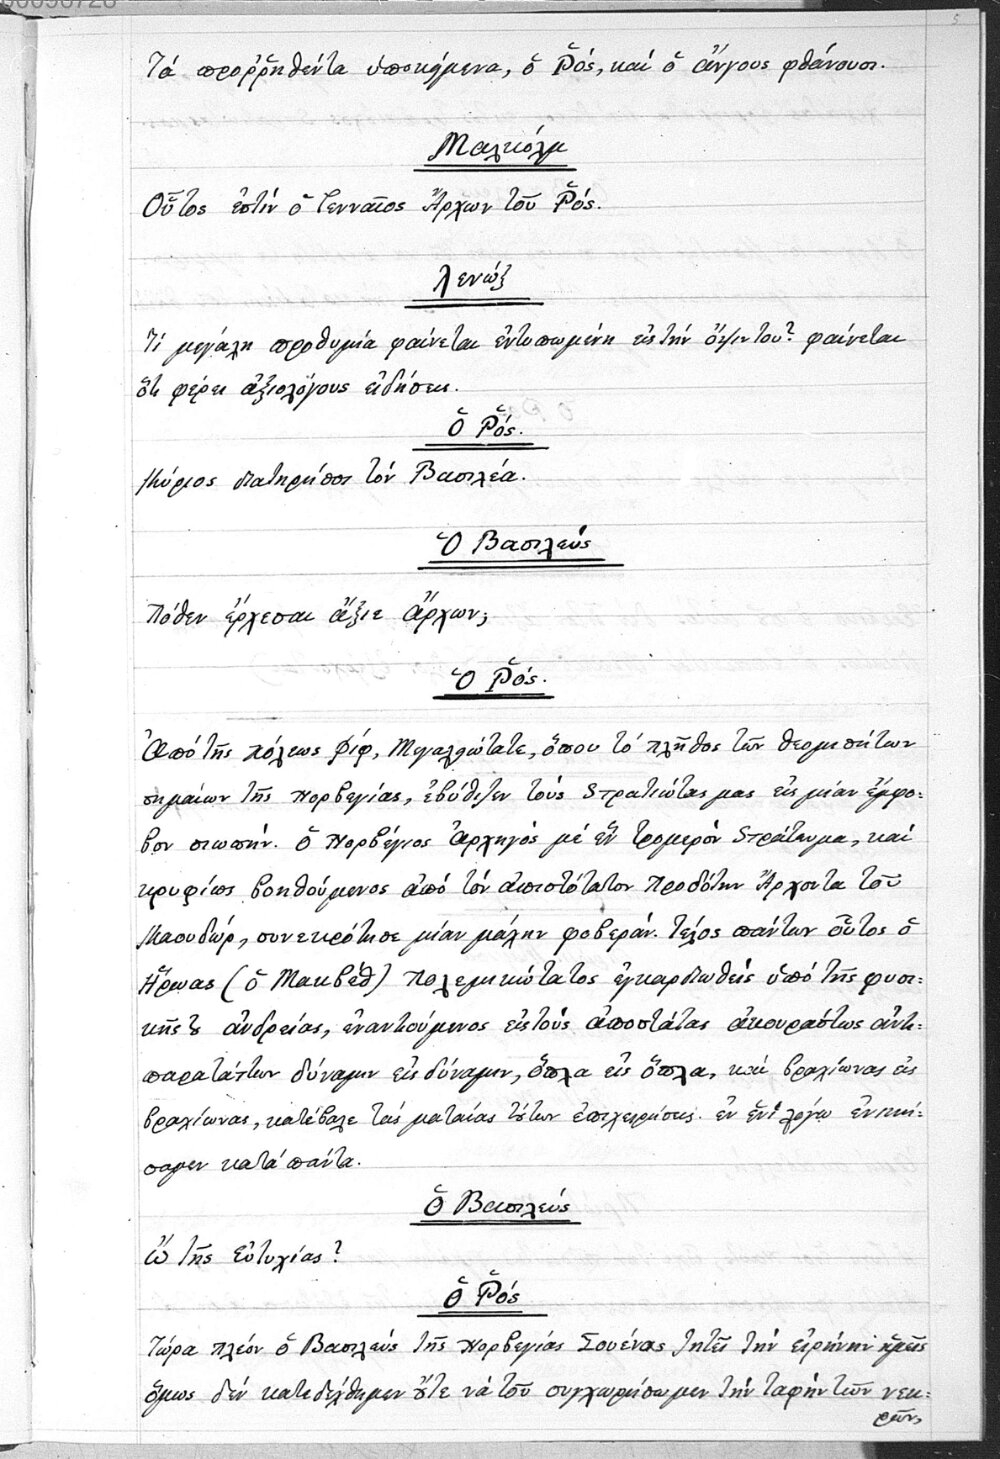 5
Τά προῤῥηθέντα ὑποκείμενα, ὁ Ῥός, καί ὁ ἄνγους φθάνουσι.
Μαλκόλμ
Οὗτος ἐστίν ὁ Γενναῖος Ἄρχων τοῦ Ῥός.
Λενώξ
Τί μεγάλη προθυμία φαίνεται ἐντυπωμένη εἰς τήν ὄψιν του? φαίνεται
ὅτι φέρει ἀξιολόγους εἰδήσεις.
Ὁ Ῥός.
Κύριος διατηρείσοι τόν Βασιλέα.
Ὁ Βασιλεύς
Πόθεν ἔρχεσαι ἄξιε ἄρχων;
Ὁ Ῥός.
Ἀπό τῆς πόλεως Φίφ, Μεγαλειώτατε, ὅπου τό πλῆθος τῶν
σημαίων τῆς Νορβεγίας, ἐβύθισεν τούς Στρατιώτας μας εἰς μίαν ἔμφο-
βον σιωπήν. ὁ Νορβέγιος Ἀρχηγός μέ ἕν τρομερόν Στράτευμα, καί
κρυφίως βοηθούμενος ἀπό τόν ἀπιστότατον Προδότην Ἄρχοντα τοῦ
Μαουδώρ, συνεκρότησε μίαν μάχην φοβεράν. Τέλος πάντων οὗτος ὁ
Ἥρωας (ὁ Μακβέθ) Πολεμικώτατος ἐγκαρδιωθείς ὑπό τῆς φυσι-
κῆς τȣ ἀνδρείας, ἐναντιούμενος εἰς τούς ἀποστάτας ἀκουράστως ἀντι-
παρατάττων δύναμιν εἰς δύναμιν, ὅπλα εἰς ὅπλα, καί βραχίωνας εἰς
βραχίωνας, κατέβαλε τάς ματαίας τȣτων ἐπιχειρήσεις. ἐν ἑνί λόγω ἐνικήi-
σαμεν κατά πάντα.
Ὁ Βασιλεύς
Ὦ τῆς εὐτυχίας?
Ὁ Ῥός
Τώρα πλέον ὁ Βασιλεύς τῆς Νορβεγίας Σουένας ζητεῖ τήν εἰρήνην ἡμεῖς
ὅμως δέν κατεδέχθημεν ȣτε νά τοῦ συγχωρήσωμεν τήν ταφήν τῶν νεκ-
ρῶν,